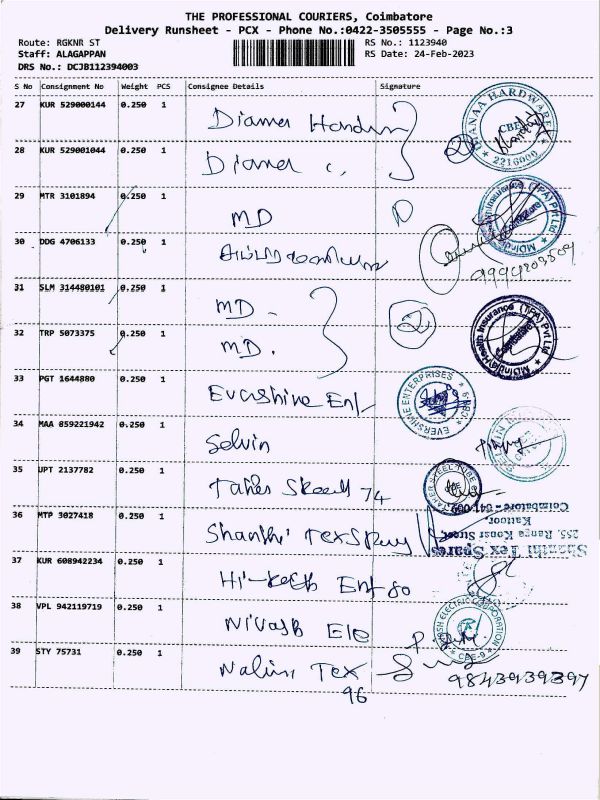 THE PROFESSIONAL COURIERS, Coimbatore
Delivery Runsheet - PCX - Phone No.:0422-3505555 - Page No.:3
Route: RGKNR ST RS No.: 1123940
Staff: ALAGAPPAN RS Date: 24-Feb-2023
DRS No.: DCJB112394003
S No Consignment No Weight PCS Consignee Details Signature
27 KUR 529000144 0.250 1
DIANAA HARDWARE
CBE
* 2216009 *
28 KUR 529001044 0.250 1 2
29 MTR 3101894 0.250 1 MD
30 DDG 4706133 0.250 1
31 SLM 314480101 0.250 1 MD - 2
MDIndia Health Insurance (TPA) Pvt Ltd
Coimbatore
32 TRP 5073375 0.250 1 MD.
33 PGT 1644880 0.250 1 Evershine Ent
EVERSHINE ENTERPRISES
34 MAA 859221942 0.250 1 Selvin
35 UPT 2137782 0.250 1 74
36 MTP 3027418 0.250 1 Shanthi Tex
Shanthi Tex Spares
255, Ranga Konar Street,
Kattoor,
Coimbatore - 641 009.
37 KUR 608942234 0.250 1 Ent 80
38 VPL 942119719 0.250 1 Nivash Ele
39 STY 75731 0.250 1 Nalini Tex
96